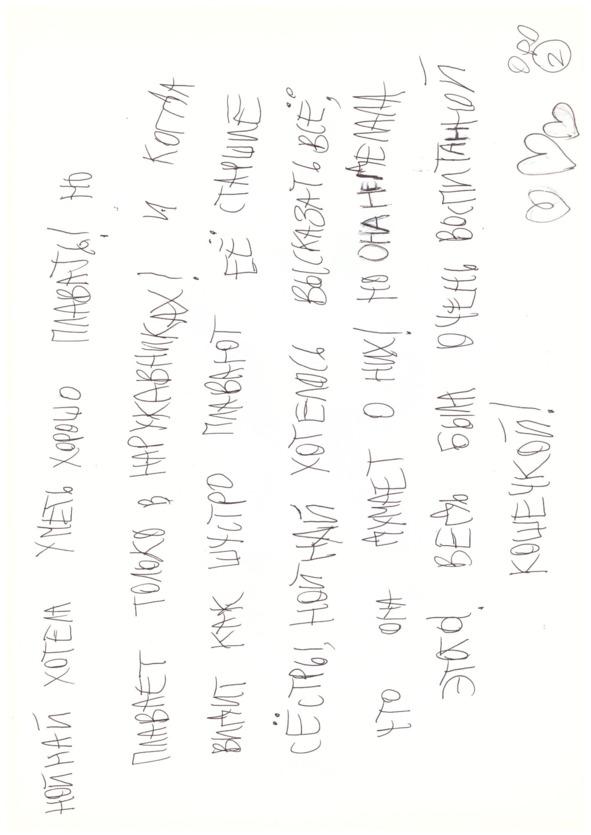 НОЙНАЙ ХОТЕЛА УМЕТЬ ХОРОШО ПЛАВАТЬ! НО
ПЛАВАЕТ ТОЛЬКО В НАРУКАВНИКАХ! И КОГДА
ВИДИТ КАК ШУСТРО ПЛАВАЮТ ЕЁ СТАРШИЕ
СЁСТРЫ, НОЙНАЙ ХОТЕЛОСЬ ВЫСКАЗАТЬ ВСЁ,
ЧТО ОНА ДУМАЕТ О НИХ! НО ОНА НЕ ДЕЛАЛА
ЭТОГО, ВЕДЬ БЫЛА ОЧЕНЬ ВОСПИТАННОЙ
КОШЕЧКОЙ!
2